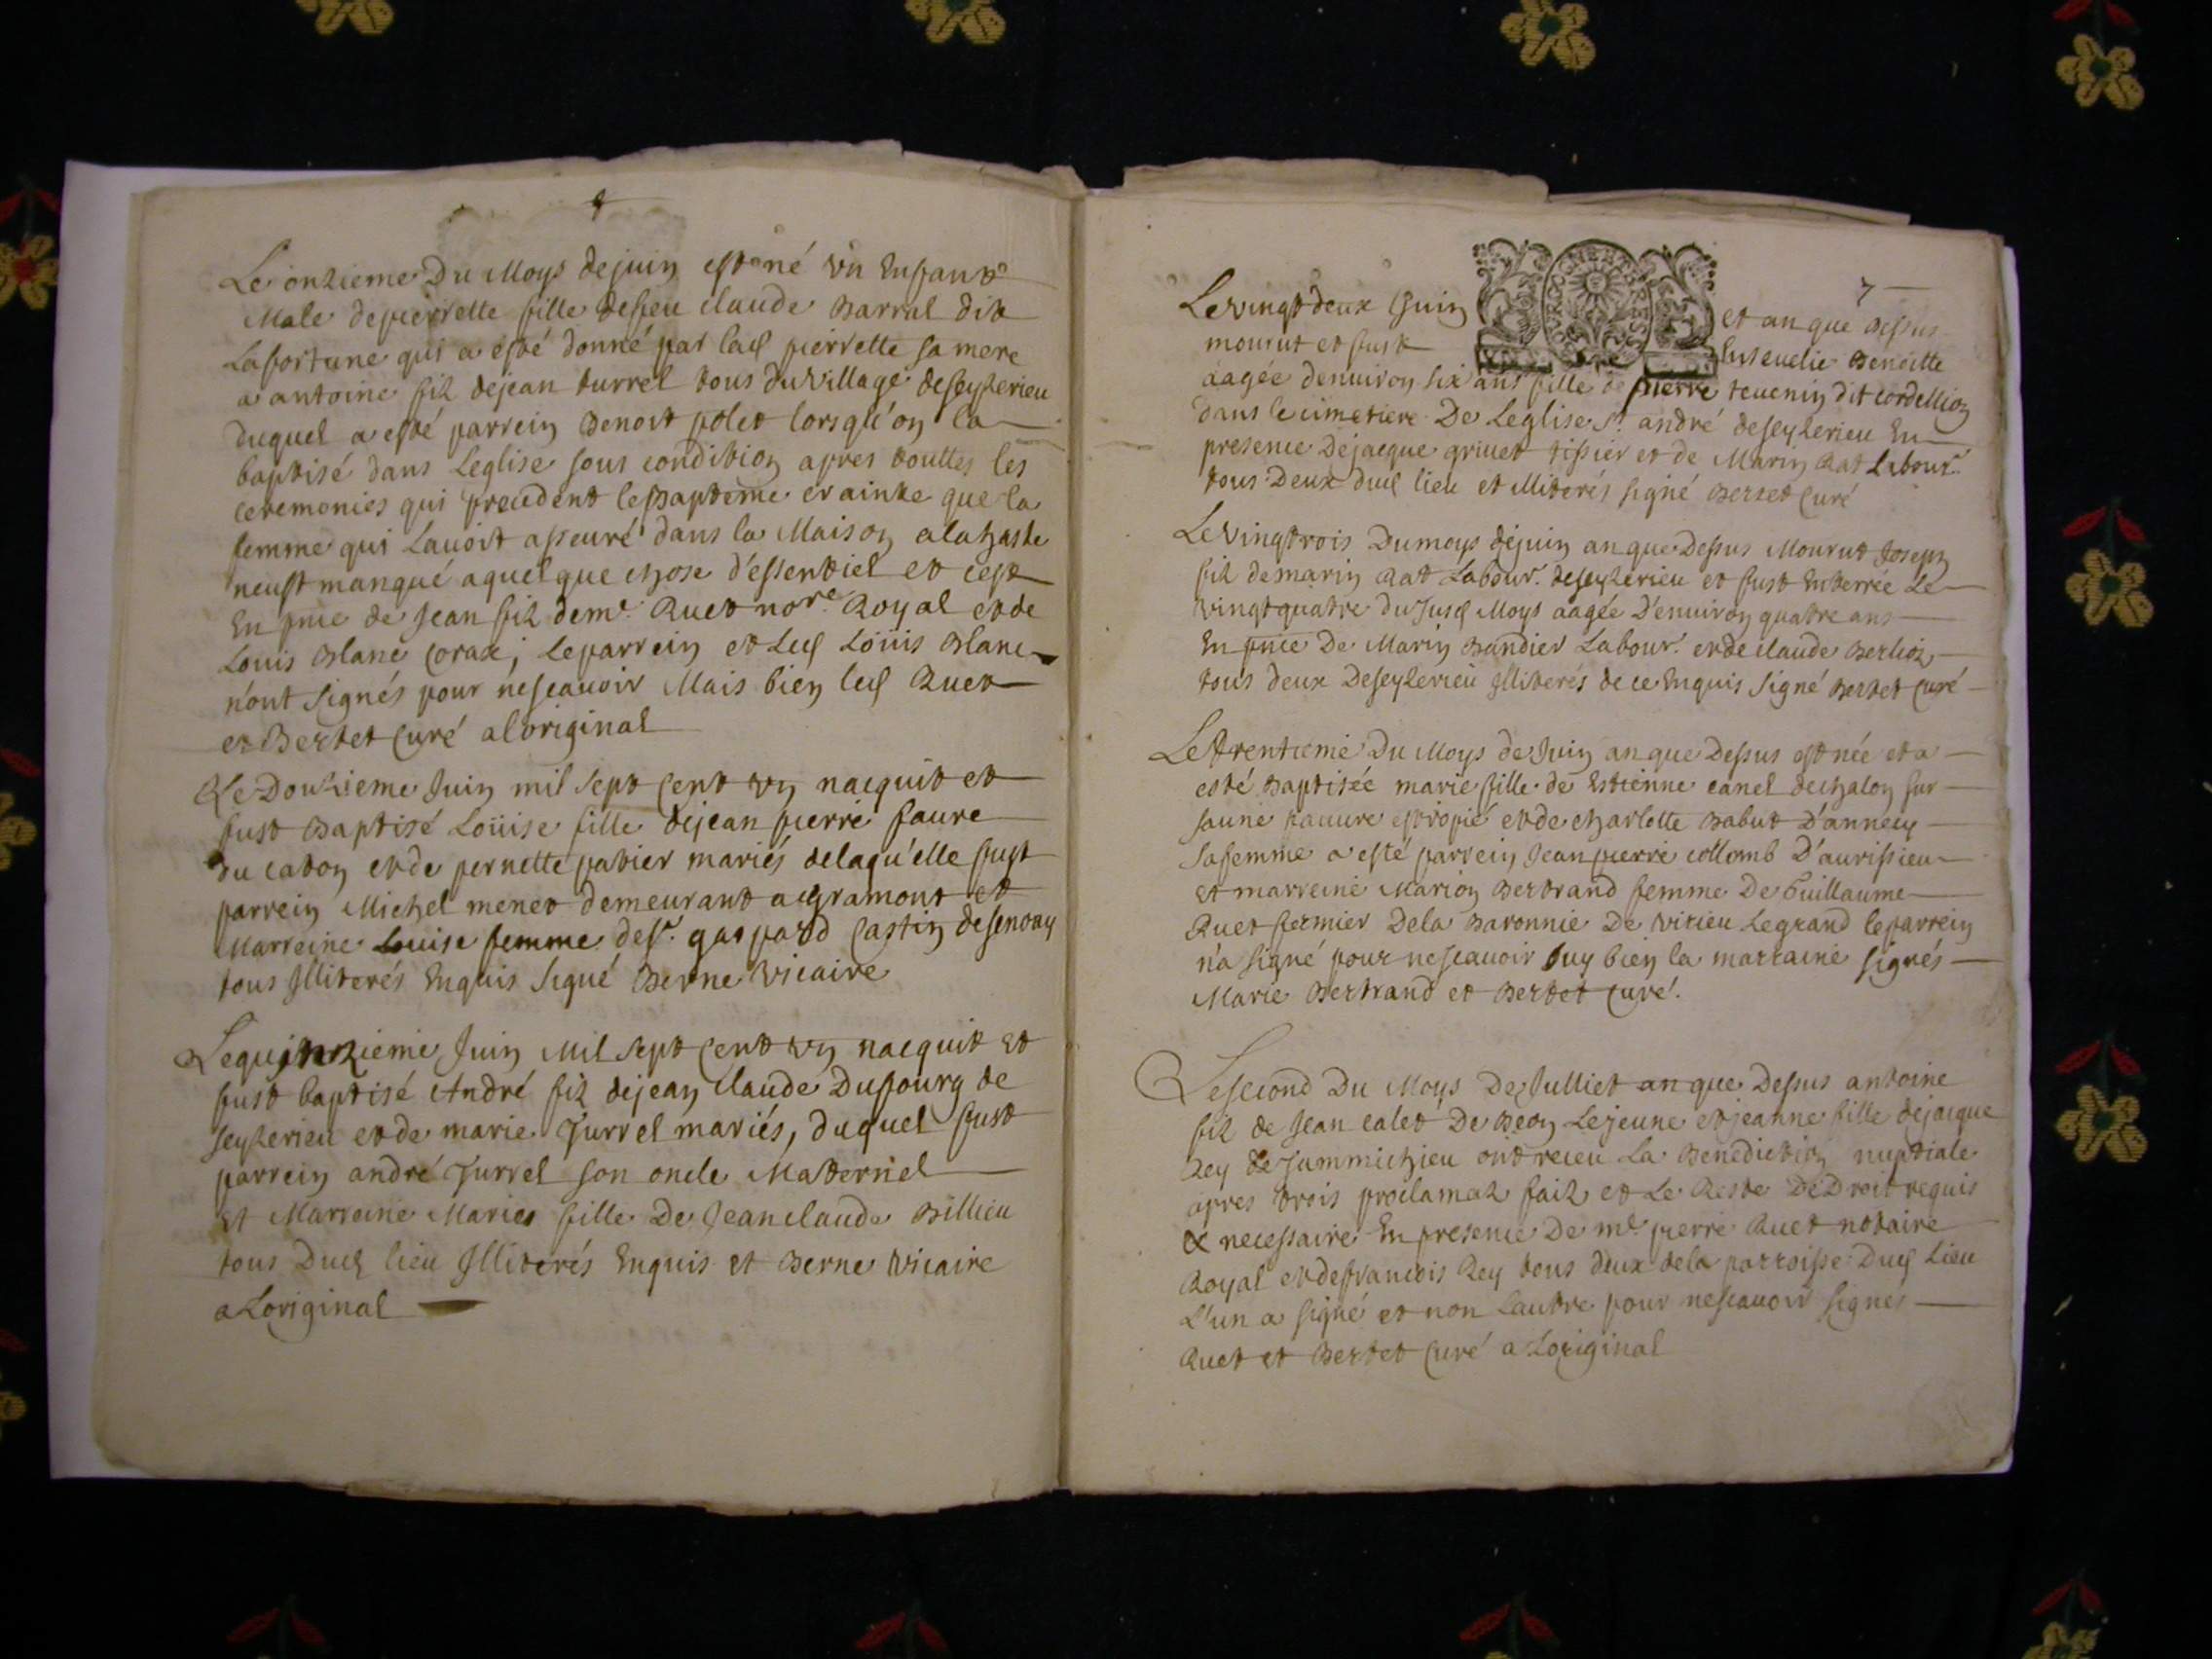 Le onzieme Du Moys de juin est né vn Enfant
Male de pierrette fille de feu claude Barral dit
Lafortune qui a esté donné par lad pierrette sa mere
a antoine fil de jean turrel tous du village de seyzerieu
duquel a esté parrein Benoit polet lorsqu'on la
baptisé dans Leglise sous condition apres touttes les
ceremonies qui precedent le Bapteme crainte que la
femme qui Lauoit asseuré dans la Maison a la haste
neust manqué a quelque chose d'essentiel et cest
En pnce de Jean fil de me. Ruet nore. Royal et de
Louis Blanc Corax, Le parrein et Led Loüis Blanc
n'ont signés pour ne scauoir Mais bien led Ruet
et Bertet Curé a loriginal
Le Douzieme Juin mil sept cent vn nacquit et
fust Baptisé Loüise fille de jean pierre faure
du caton et de pernette pavier mariés de laqu'elle fust
parrein Michel menet demeurant a gramont et
Marreine Louise femme de sr. gaspard Castin de
tous Illiterés Enquis Signé Berne Vicaire
Le quinzieme Juin Mil Sept Cent vn nacquit Et
fust baptisé André fil de jean claude Dufourg de
seyzerieu et de marie Turrel mariés, duquel fust
parrein andré Turrel son oncle Maternel
Et Marreine Marie fille De Jean claude Billieu
tous Dud lieu Illiterés Enquis et Berne Vicaire
a Loriginal
7
Le vingt deux Juin et an que dessus
mourut et fust Enseuelie Benoitte
aagée denuiron six ans fille de pierre teuenin dit cordellion
dans le cimetiere De Leglise St. andré de seyzerieu En
presence De jacque griuet tissier et de Marin Rat Labour.
tous Deux dud lieu et illiterés signé Bertet Curé
Le Vingtrois Du moys de juin an que Dessus Mourut Joseph
fil de marin Rat Labour. de seyzerieu et fust Enterrée Le
vingt quatre du susd Moys aagée D'enuiron quatre ans
En pnce De Marin Bandier Labour. et de claude Berlioz
tous deux De seyzerieu Illiterés de ce Enquis Signé Bertet Curé
Le trentieme Du Moys de Juin an que Dessus est née et a
esté Baptisée marie fille de Estienne canel de chalon sur
saune pauure estropié et de charlotte Babut D'annecy
sa femme a esté parrein Jean pierre collomb D'aurissieu
Et marreine Marion Bertrand femme De Guillaume
Ruet fermier De la Baronnie De virieu Le grand le parrein
n'a signé pour ne scauoir Ouy bien la marraine signés
Marie Bertrand et Bertet Curé.
Le second Du Moys De Julliet an que Dessus antoine
fil de Jean calet De Beon Le jeune et jeanne fille de jacque
Rey de Tammichieu ont receu La Benediction nuptiale
apres trois proclamaz faiz et Le Reste De Droit requis
& necessaire En presence De me. pierre Ruet notaire
Royal et de francois Rey tous deux de la parroisse Dud Lieu
L'un a signé et non Lautre pour ne scauoir signer
Ruet et Bertet Curé a Loriginal